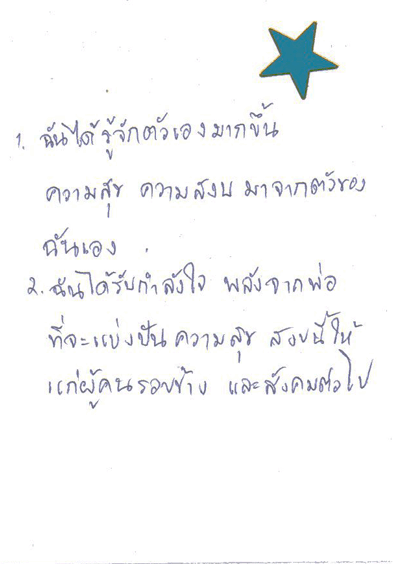 1. ฉันได้รู้จักตัวเองมากขึ้น
ความสุข ความสงบ มาจากตัวของ
ฉันเอง
2. ฉันได้รับกำลังใจ พลังจากพ่อ
ที่จะแบ่งปันความสุข สงบนี้ให้
แก่ผู้คนรอบข้าง และสังคมต่อไป